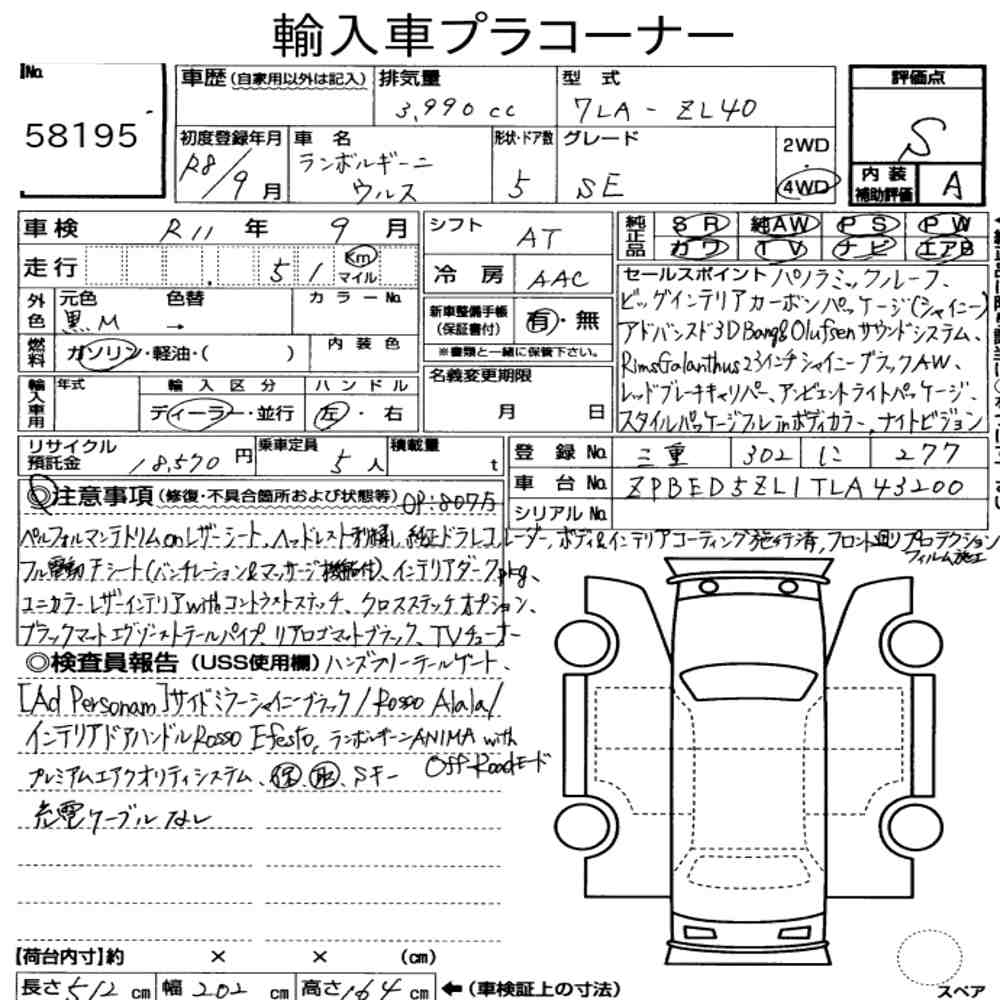 輸入車プラコーナー
No.
58195
車歴(自家用以外は記入) 排気量 3,990cc
型式 7LA-ZL40
評価点 S
初度登録年月 R8/9月
車名 ランボルギーニ ウルス
形状・ドア数 5
グレード SE
2WD
4WD
内装補助評価 A
車検 R11年 9月
シフト AT
純正品 SR 純AW PS PW
カワ TV ナビ エアB
走行 51 Km マイル
冷房 AAC
外色 元色 黒M 色替 → カラーNo.
新車整備手帳(保証書付) 有・無
※書類と一緒に保管下さい。
燃料 ガソリン・軽油・( ) 内装色
名義変更期限 月 日
輸入車用 年式 輸入区分 ディーラー・並行 ハンドル 左・右
セールスポイント パノラミックルーフ、
ビッグインテリアカーボンパッケージ(シャイニー)
アドバンスド3DBang&Olufsenサウンドシステム、
RimsGalanthus23インチシャイニーブラックAW、
レッドブレーキキャリパー、アンビエントライトパッケージ、
スタイルパッケージフルinボディカラー、ナイトビジョン
リサイクル預託金 18,570円 乗車定員 5人 積載量 t
登録No. 三重 302 に 277
車台No. ZPBED5ZL1TLA43200
シリアルNo.
◎注意事項(修復・不具合箇所および状態等) OP:807.5
ペルフォルマンテトリムonレザーシート、ヘッドレスト刺繍、純正ドラレコ、レーダー、ボディ&インテリアコーティング施行済、フロント廻りプロテクションフィルム施工
フル電動Fシート(ベンチレーション&マッサージ機能付)、インテリアダークpkg、
ユニカラーレザーインテリアwithコントラストステッチ、クロスステッチオプション、
ブラックマットエグゾーストテールパイプ、リアロゴマットブラック、TVチューナー
◎検査員報告(USS使用欄) ハンズフリーテールゲート、
[Ad Personam]サイドミラーシャイニーブラック/Rosso Alala/
インテリアドアハンドルRosso Efesto、ランボルギーニANIMA with
Off-Roadモード
プレミアムエアクオリティシステム、保 取、Sキー
充電ケーブルなし
【荷台内寸】約 × × (cm)
長さ 512cm 幅 202cm 高さ 164cm ←(車検証上の寸法)
スペア